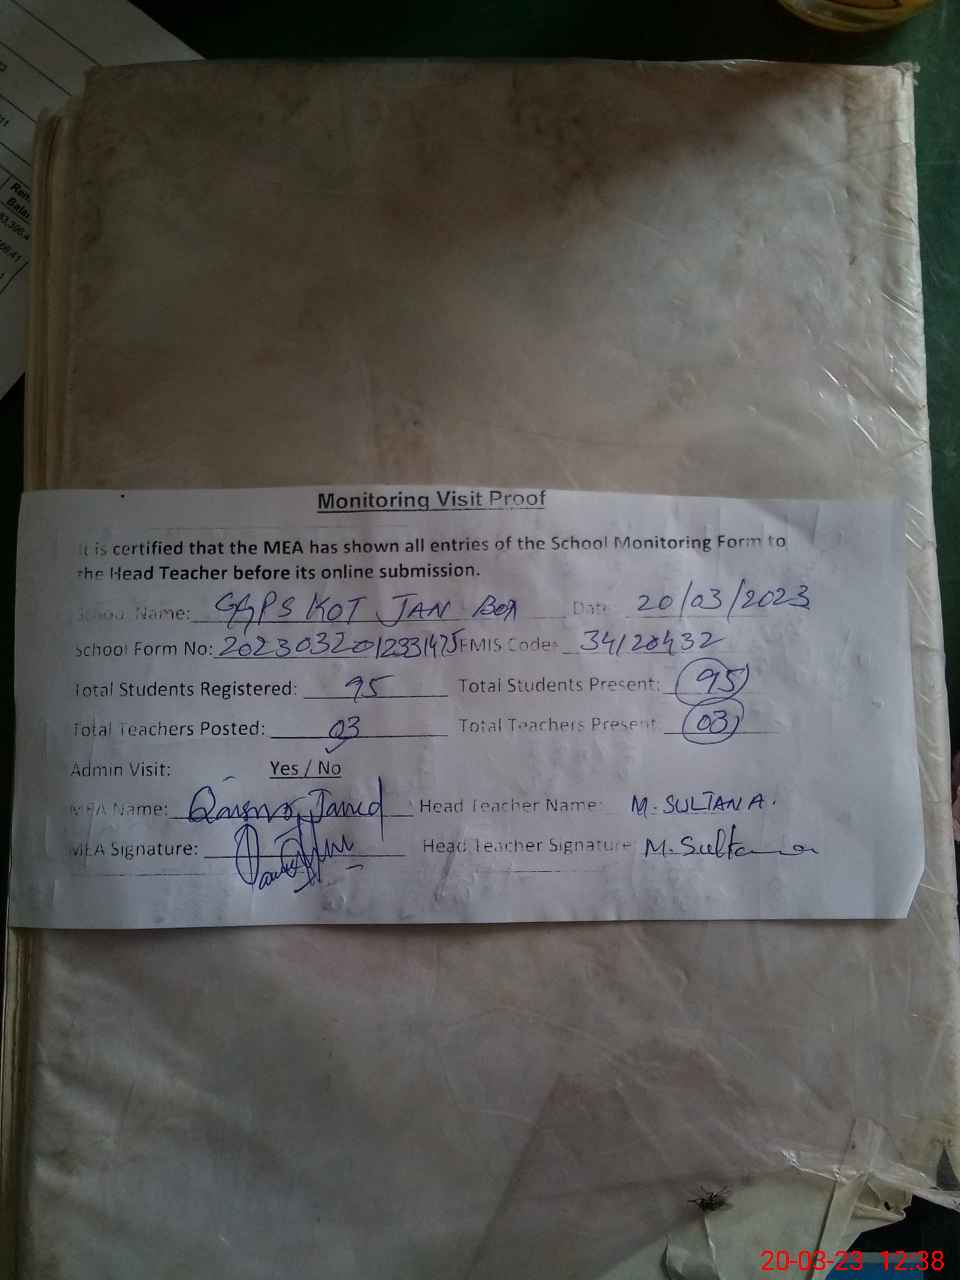 Rem.
Monitoring Visit Proof
It is certified that the MEA has shown all entries of the School Monitoring Form to
the Head Teacher before its online submission.
School Name: GGPS KOT JAN Date: 20/03/2023
School Form No: EMIS Code: 34120432
Total Students Registered: 95 Total Students Present: 95
Total Teachers Posted: 03 Total Teachers Present: 03
Admin Visit: Yes / No
MEA Name: Head Teacher Name: M. SULTANA.
MEA Signature: Head Teacher Signature: M. Sultana
20-03-23 12:38